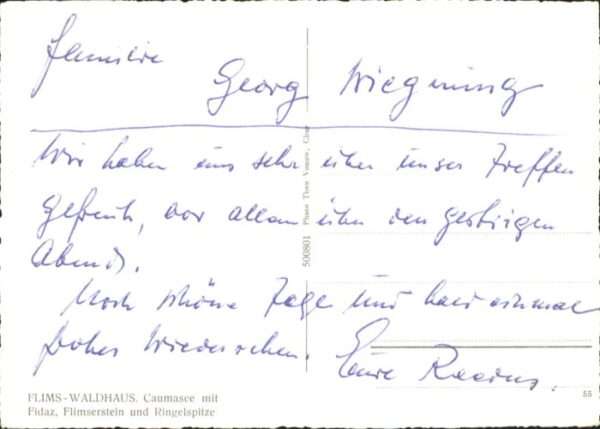 Familie
Georg
Wir haben uns sehr über unser Treffen
gefreut, vor allem über den gestrigen
Abend.
Noch schöne Tage und bald einmal
frohes Wiedersehen. Eure
500801 Photo Theo Vonow, Chur
FLIMS-WALDHAUS. Caumasee mit
Fidaz, Flimserstein und Ringelspitze
55